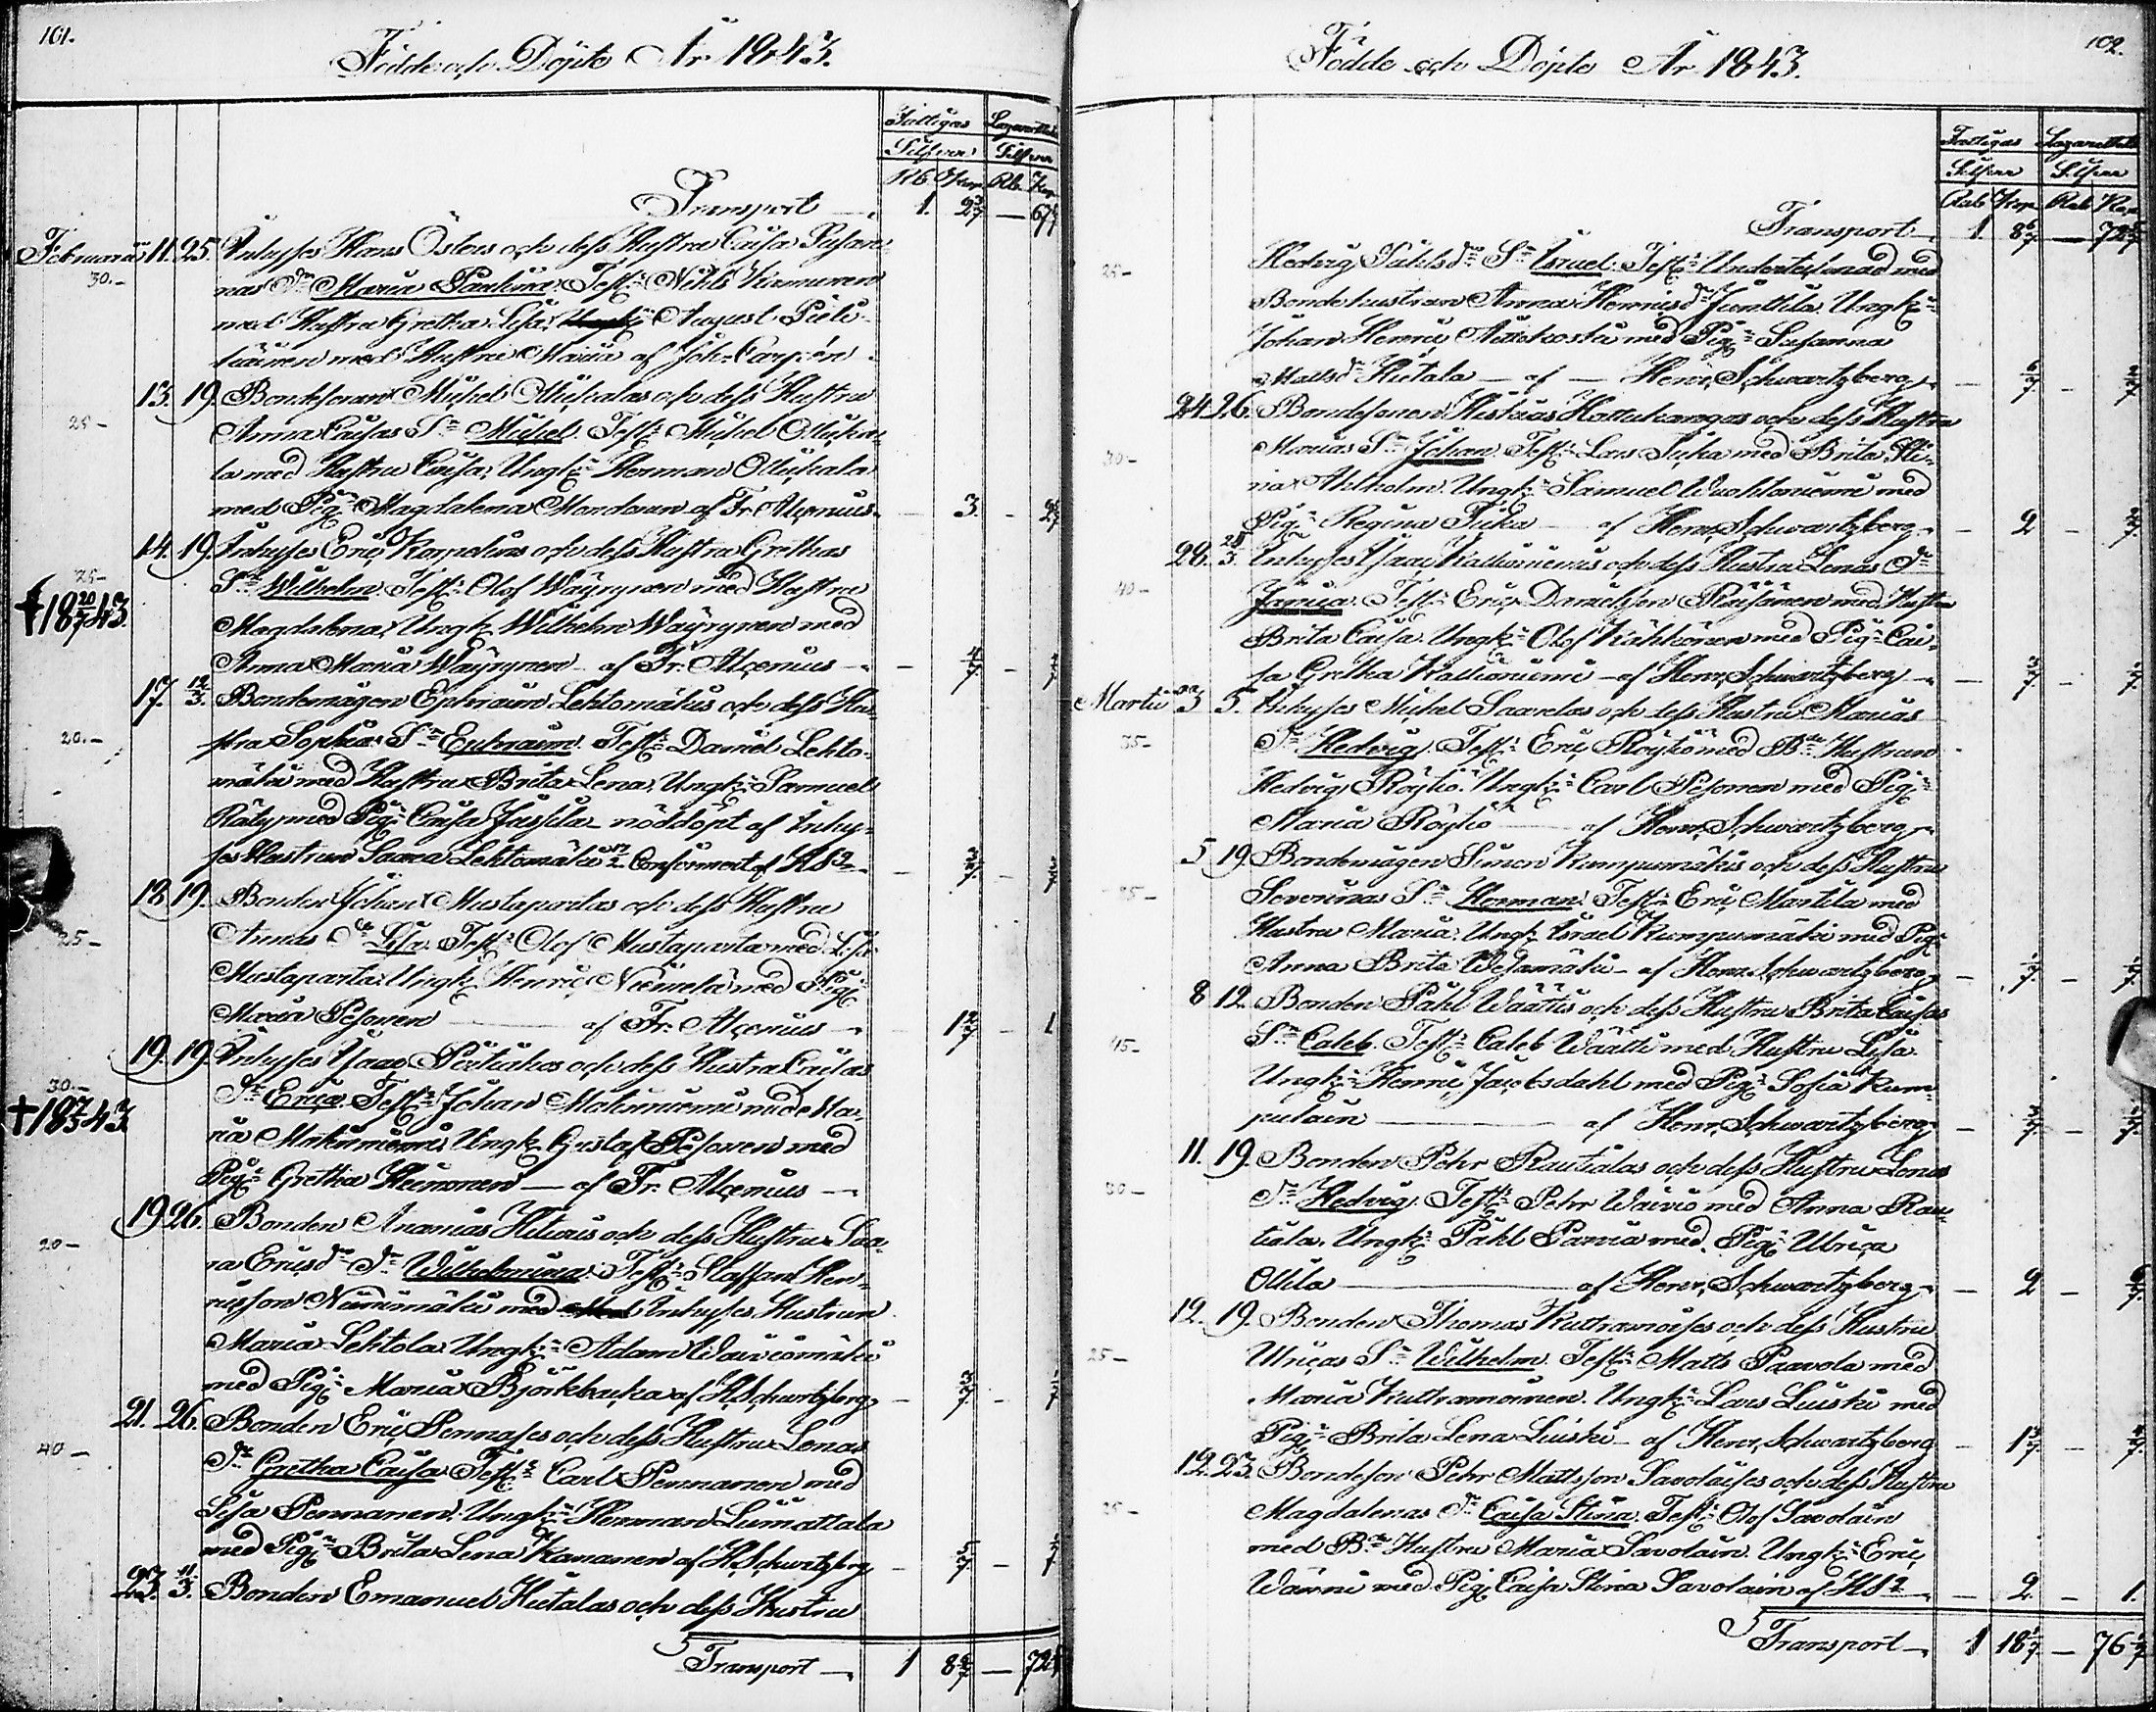 101.
Födde och Döpte År 1843.
Fattigas Lazarettets
Silfver Silfver
Rb. Kop. Rb. Kop.
Transport 1. 2 3/7 — 67
Februarii 11. 25. Inhyses Hans Östers och dess Hustru Caisa Susan-
30.- nas Dr Maria Paulina. Test: Nihls Kamunen
med Hustru Gretha Lisa, August Pieti-
läinen med Hustru Maria af Joh. Carpén
13. 19. Bondesonen Michel Ollikalas och dess Hustru
25- Anna Caisas Sn Michel. Test: Michel Ollika-
la med Hustru Caisa, Ungk: Herman Ollikala
med Pig: Magdalena Mondonen af Fr. Alcenius — 3. —
14. 19. Inhyses Eric Karpelins och dess Hustru Grethas
25- Sn Wilhelm. Test: Olof Wäyrynen med Hustru
†18 20/7 43. Magdalena, Ungk: Wilhelm Wäyrynen med
Anna Maria Wäyrynen — af Fr. Alcenius — 4/7 —
17. 12/3. Bondemågen Ephraim Lehtomäkis och dess Hu-
20.- stru Sophias Sn Ephraim. Test: Daniel Lehto-
mäki med Hustru Brita Lena, Ungk: Samuel
Räty med Pig: Caisa Jussila — nöddöpt af Inhy-
ses Hustrun Saara Lehtomäki Confirmert af HSg
18. 19. Bonden Johan Mustapartas och dess Hustru
25- Annas Dr Lisa. Test: Olof Mustaparta med Lisa
Mustaparta, Ungk: Henric Niemelä med Pig:
Maria Pesonen — af Fr. Alcenius — 1 2/7 — 1
19. 19. Inhyses Isaac Pertukas och dess Hustru Caisas
30.- Dr Erica. Test: Johan Matinniemi med Ma-
†18 7/3 43. ria Matinniemi, Ungk: Gustaf Pesonen med
Pig: Gretha Heinonen — af Fr. Alcenius —
19 26. Bonden Ananias Hiltuis och dess Hustru Saa-
20- ra Ericsdr Dr Wilhelmina. Test: Staffan Hen-
ricsson Nurmimäki med Inhyses Hustrun
Maria Lehtola, Ungk: Adam Waiviomäki
med Pig: Maria Björkbacka af HSchwartzberg — 3/7 —
21. 26. Bonden Eric Pennases och dess Hustru Lenas
40- Dr Gretha Caisa. Test: Carl Pennanen med
Lisa Pennanen. Ungk: Herman Liimattala
med Pig: Brita Lena Kananen af HSchwartzbrg — 5/7 —
23. 11/3. Bonden Emanuel Hietalas och dess Hustru
Transport — 1 8 6/7 — 72
102.
Födde och Döpte År 1843.
Fattigas Lazarettets
Silfver Silfver
Rub Kop. Rub Kop.
Transport — 1. 8 6/7 — 72
25- Hedvig Påhlsdr Sn Israel. Test: Undertecknad med
Bondehustrun Anna Henricsdr Junttila. Ungk:
Johan Henric Ahtikoski med Pig: Susanna
Mattsdr Hietala — af — Henr. Schwartzberg — 6/7 —
24. 26. Bondesonen Hiskias Hottukangas och dess Hustru
30- Marias Sn Johan. Test: Lars Juka med Brita Ma-
ria Ahlholm. Ungk: Samuel Wuohtoniemi med
Pig: Regina Juka — af Henr. Schwartzberg — 2 —
28. Inhyses Isaac Kallioniemis och dess Hustru Lenas Dr
40- Jäniça. Test: Eric Danielsson Räisänen med Hustru
Brita Caisa. Ungk: Olof Kähkönen med Pig: Cai-
sa Gretha Kallioniemi — af Henr. Schwartzberg —
Martii 3 5. Inhyses Michel Saarelas och dess Hustru Marias
35- Dr Hedvig. Test: Eric Röytiö med Bde Hustrun
Hedvig Röytiö. Ungk: Carl Pesonen med Pig:
Maria Röytiö — af Henr. Schwartzberg —
5 19. Bondemågen Simon Kumpumäkis och dess Hustru
25- Severinas Sn Herman. Test: Eric Martila med
Hustru Maria. Ungk: Israel Kumpumäki med Pig:
Anna Brita Wesamäki — af Henr. Schwartzberg —
8 12. Bonden Påhl Wäättis och dess Hustru Brita Caisas
45- Sn Caleb. Test: Caleb Wäätti med Hustru Lisa.
Ungk: Henric Jacobsdahl med Pig: Sofia Kum-
pulain — af Henr. Schwartzberg —
11. 19. Bonden Pehr Rautialas och dess Hustru Lenas
30- Dr Hedvig. Test: Pehr Wäiviö med Anna Rau-
tiala. Ungk: Påhl Parvia med Pig: Ulrica
Ollila — af Henr. Schwartzberg — 2 —
12. 19. Bonden Thomas Kutramoises och dess Hustru
25- Ulricas Sn Wilhelm. Test: Matts Paavola med
Maria Kuttramoinen. Ungk: Lars Luiski med
Pig: Brita Lena Luiski — af Henr. Schwartzberg — 1 3/7 —
12. 23. Bondeson Pehr Mattsson Savolaises och dess Hustru
25- Magdalenas Dr Caisa Stina. Test: Olof Savolain
med Bde Hustru Maria Savolain. Ungk: Eric
Wänni med Pig: Caisa Stina Savolain af HSg — 2. — 1.
Transport — 1 18 1/7 — 76